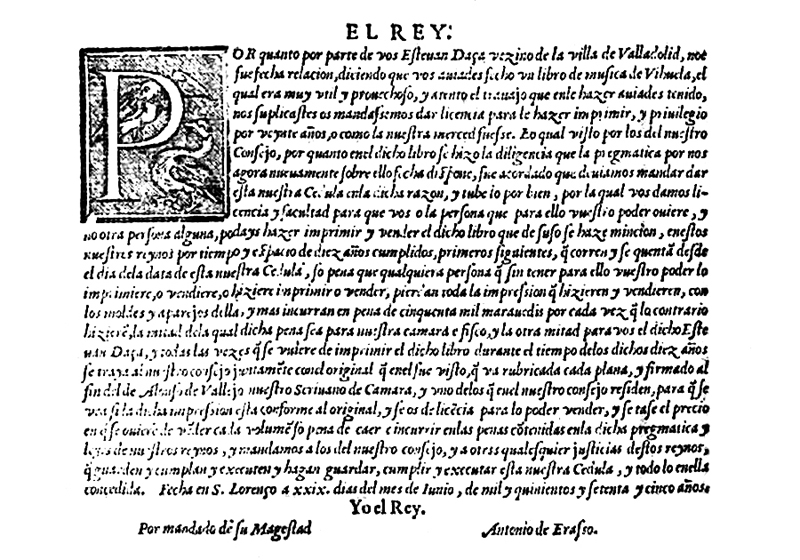 EL REY:
POR quanto por parte de vos Esteuan Daça vezino de la villa de Valladolid, nos
fue fecha relacion, diciendo que vos auiades fecho vn libro de musica de Vihuela, el
qual era muy vtil y prouechoso, y atento el trabajo que en le hazer auiades tenido,
nos suplicastes os mandassemos dar licencia para le hazer imprimir, y priuilegio
por veynte años, o como la nuestra merced fuesse. Lo qual visto por los del nuestro
Consejo, por quanto enel dicho libro se hizo la diligencia que la pregmatica por nos
agora nueuamente sobre ello fecha dispone, fue acordado que deuiamos mandar dar
esta nuestra Cedula enla dicha razon, y tube lo por bien, por la qual vos damos li-
cencia y facultad para que vos o la persona que para ello vuestro poder ouiere, y
no otra persona alguna, podays hazer imprimir y vender el dicho libro que de suso se haze mincion, enestos
nuestros reynos por tiempo y espacio de diez años cumplidos, primeros siguientes, q̃ corren y se quentã desde
el dia dela data de esta nuestra Cedula, so pena que qualquiera persona q̃ sin tener para ello vuestro poder lo
imprimiere, o vendiere, o hiziere imprimir o vender, pierdan toda la impression q̃ hizieren y vendieren, con
los moldes y aparejos della, y mas incurran en pena de cinquenta mil marauedis por cada vez q̃ lo contrario
hizierẽ, la mitad dela qual dicha pena sea para nuestra camara e fisco, y la otra mitad para vos el dicho Este
uan Daça, y todas las vezes q̃ se vuiere de imprimir el dicho libro durante el tiempo delos dichos diez años
se trayа al nuestro consejo juntamẽte conel original q̃ enel fue visto, q̃ va rubricada cada plana, y firmado al
fin del de Alonso de Vallejo nuestro Scriuano de Camara, y vno delos q̃ enel nuestro consejo residen, para q̃ se
vea si la dicha impression esta conforme al original, y se os de licẽcia para lo poder vender, y se tase el precio
en q̃ se ouiere de vẽder cada volumẽ so pena de caer e incurrir enlas penas cõtenidas enla dicha pregmatica y
leyes de nuestros reynos, y mandamos a los del nuestro consejo, y a otras qualesquier justicias destos reynos,
q̃ guarden y cumplan y executen y hagan guardar, cumplir y executar esta nuestra Cedula, y todo lo enella
contedida. Fecha en S. Lorenço a xxix. dias del mes de Iunio, de mil y quinientos y setenta y cinco años.
Yo el Rey.
Por mandado dẽ su Magestad Antonio de Erasso.